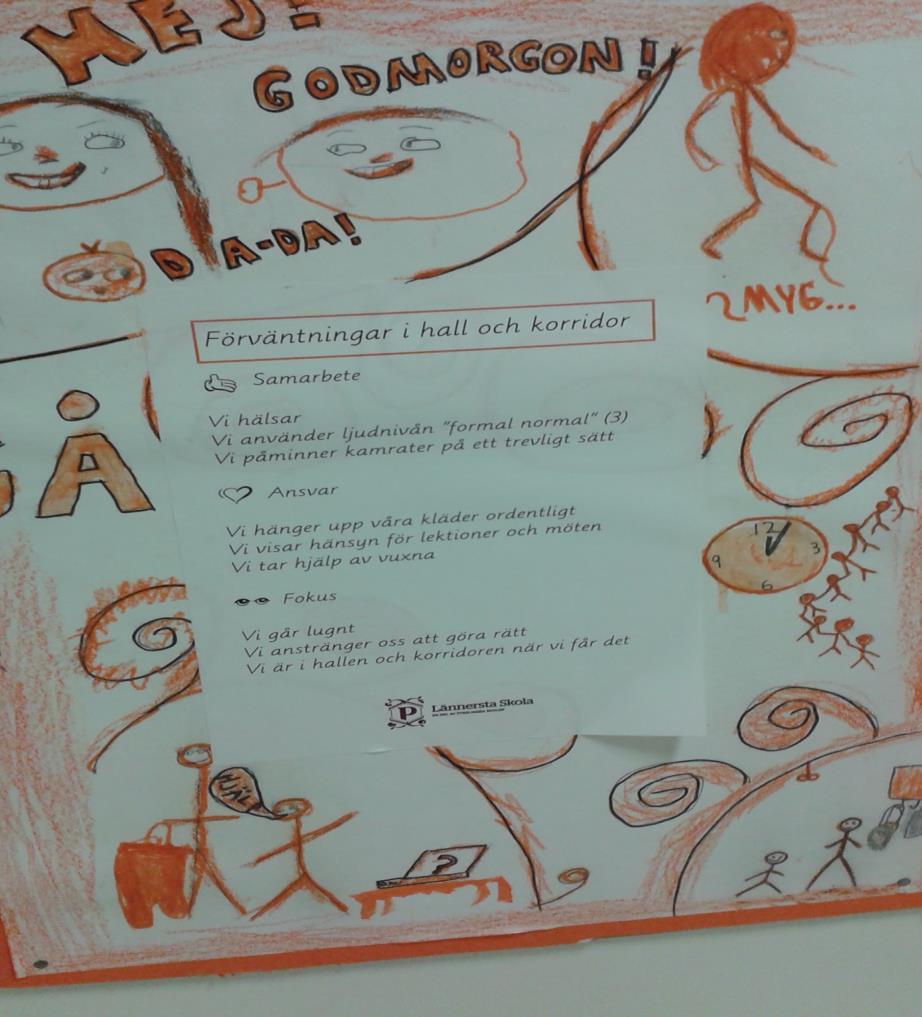 HEJ!
GODMORGON!
DA-DA!
SMYG...
Förväntningar i hall och korridor
Samarbete
Vi hälsar
Vi använder ljudnivån "formal normal" (3)
Vi påminner kamrater på ett trevligt sätt
GÅ
Ansvar
Vi hänger upp våra kläder ordentligt
Vi visar hänsyn för lektioner och möten
Vi tar hjälp av vuxna
12
3
6
9
Fokus
Vi går lugnt
Vi anstränger oss att göra rätt
Vi är i hallen och korridoren när vi får det
P Lännersta Skola
HJÄLP
?